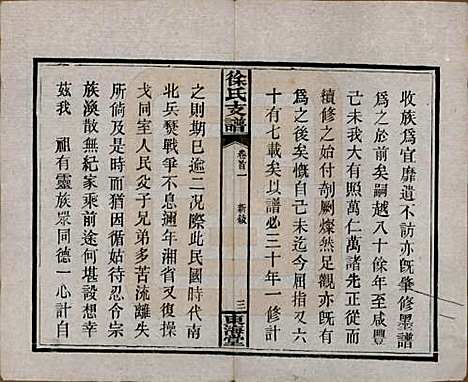 收族為宜靡遺不訪亦既肇修墨譜
為之於前矣嗣越八十餘年至咸豐
己未我大有照萬仁諸先正從而
續修之始付剞劂燦然足觀亦既有
為之後矣慨自己未迄今屈指又六
十有七載矣以譜必三十年一修計
徐氏支譜
卷首一
新敘
三
東海堂
之則期已逾二况際此民國時代南
北兵燹戰爭不息邇年湘省又復操
戈同室人民父子兄弟多苦流離失
所倘及是時猶因循姑待忍合宗
族渙散無紀家乘前途何堪設想幸
茲我 祖有靈族眾同德一心計自